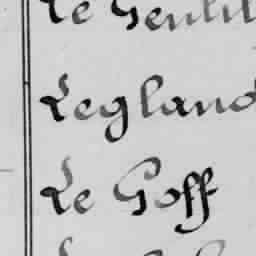 Le Gentil
Legland
Le Goff